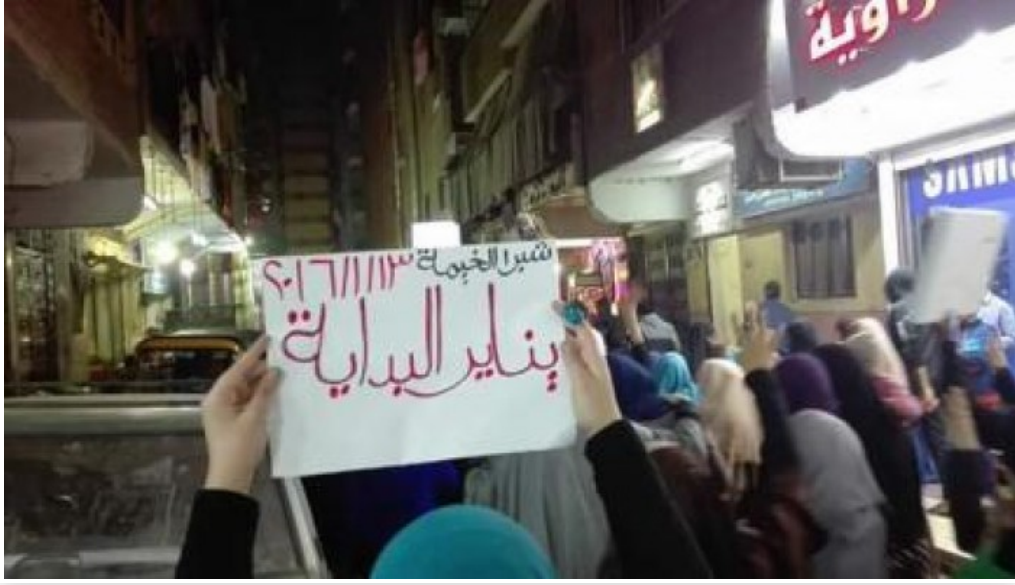 شبرا الخيمة ٢٠١٦/١/١٣
يناير البداية
SAMS